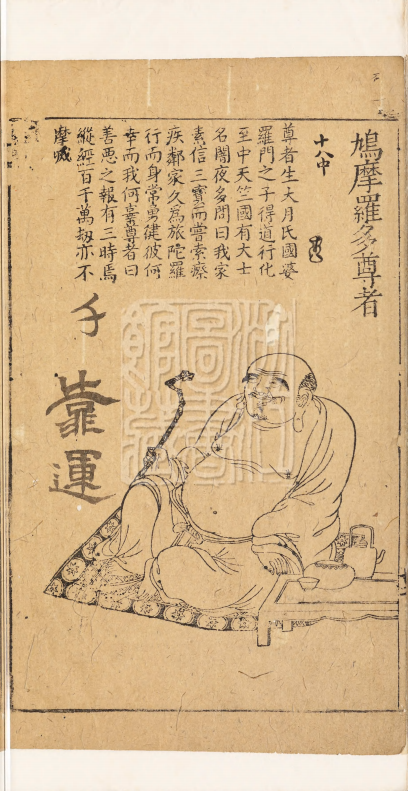 鳩摩羅多尊者
十八中
尊者生大月氏國婆
羅門之子得道行化
至中天竺國有大士
名闍夜多問曰我家
素信三寶而嘗索瘵
疾鄰家久爲旃陀羅
行而身常勇健彼何
幸而我何辜尊者曰
善惡之報有三時焉
縱經百千萬劫亦不
摩滅
靠運